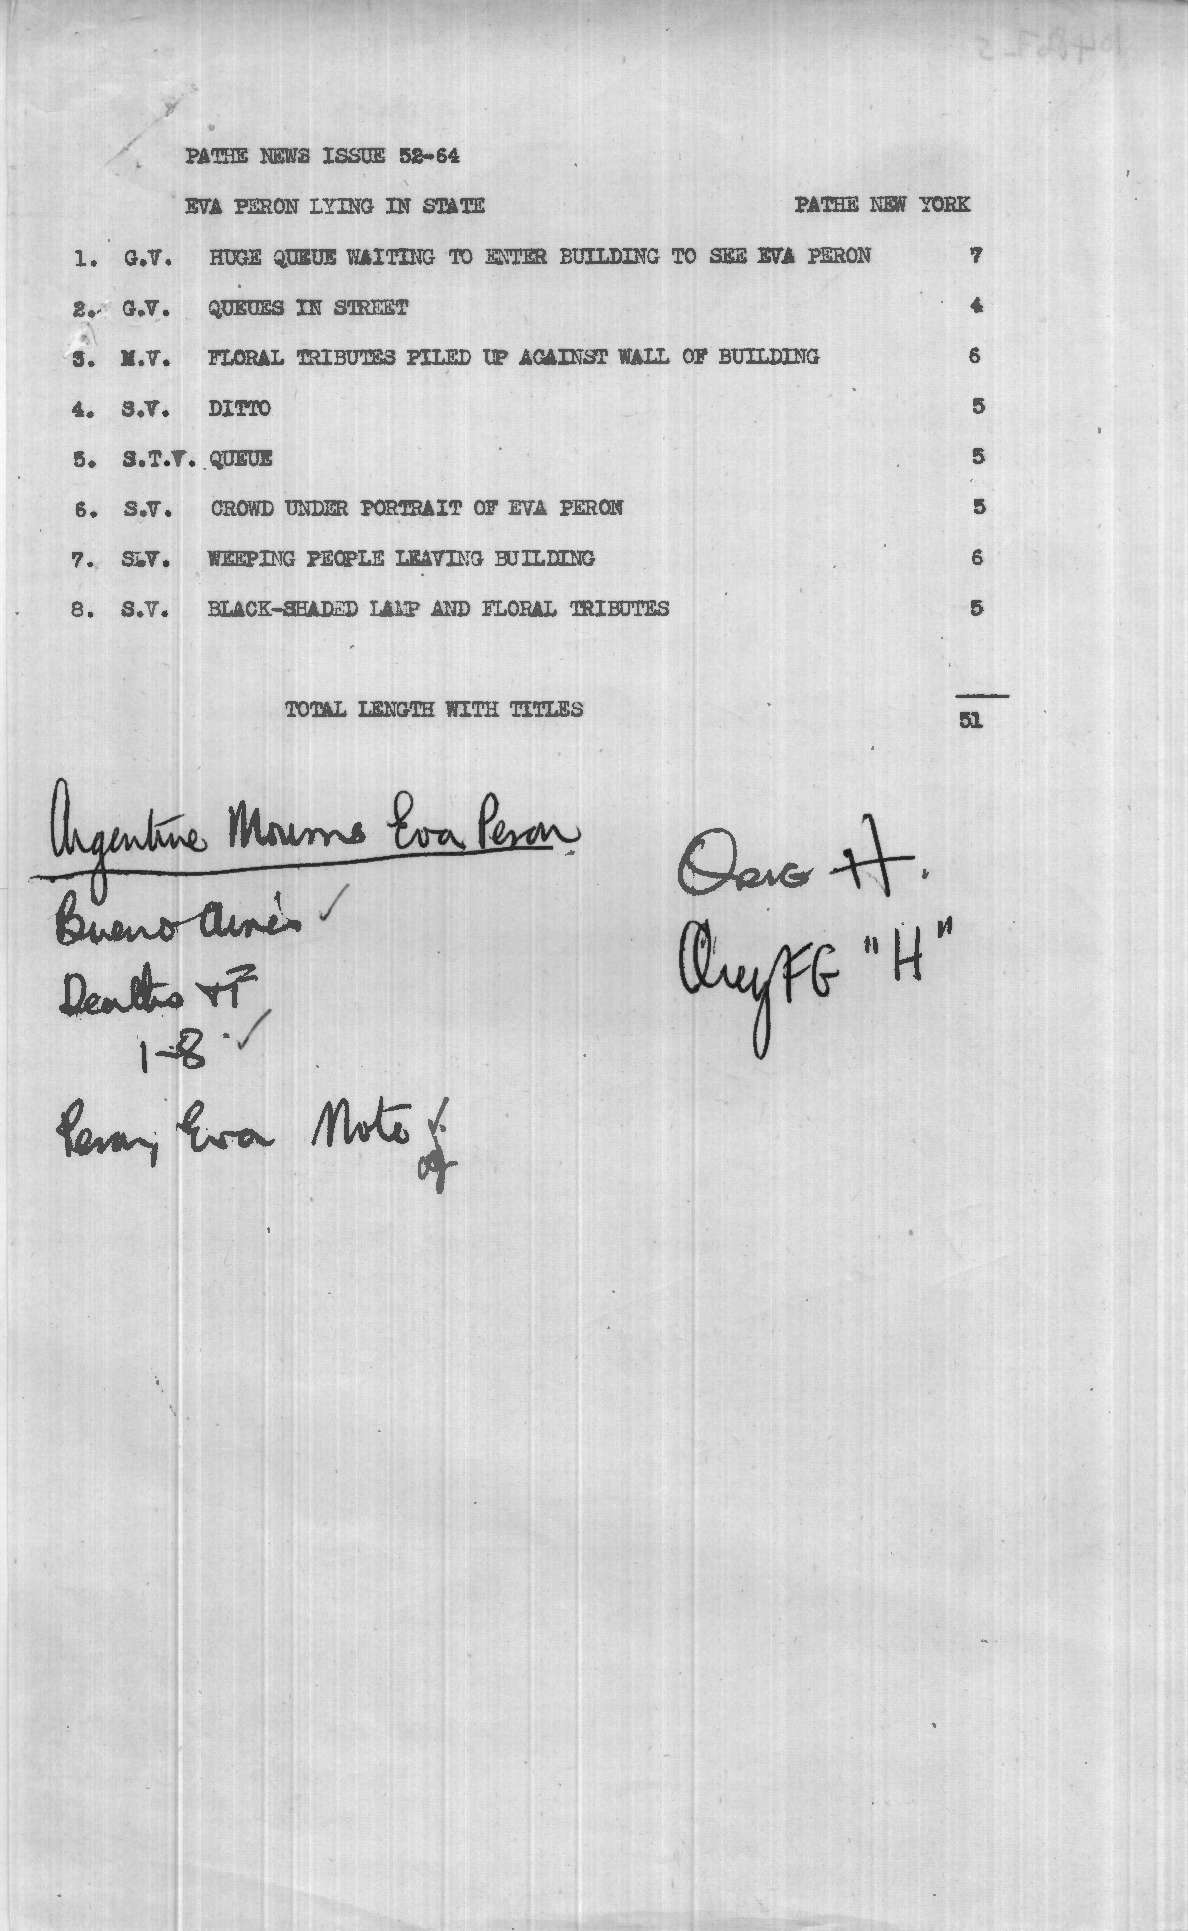 PATHE NEWS ISSUE 52-64
EVA PERON LYING IN STATE PATHE NEW YORK
1. G.V. HUGE QUEUE WAITING TO ENTER BUILDING TO SEE EVA PERON 7
2. G.V. QUEUES IN STREET 4
3. M.V. FLORAL TRIBUTES PILED UP AGAINST WALL OF BUILDING 6
4. S.V. DITTO 5
5. S.T.V. QUEUE 5
6. S.V. CROWD UNDER PORTRAIT OF EVA PERON 5
7. S.V. WEEPING PEOPLE LEAVING BUILDING 6
8. S.V. BLACK-SHADED LAMP AND FLORAL TRIBUTES 5
TOTAL LENGTH WITH TITLES 51
Argentine Mourns Eva Peron
Orig H.
Bueno Aires ✓
Orig FG "H"
Deaths
1-8 ✓
Peron, Eva Note ✓